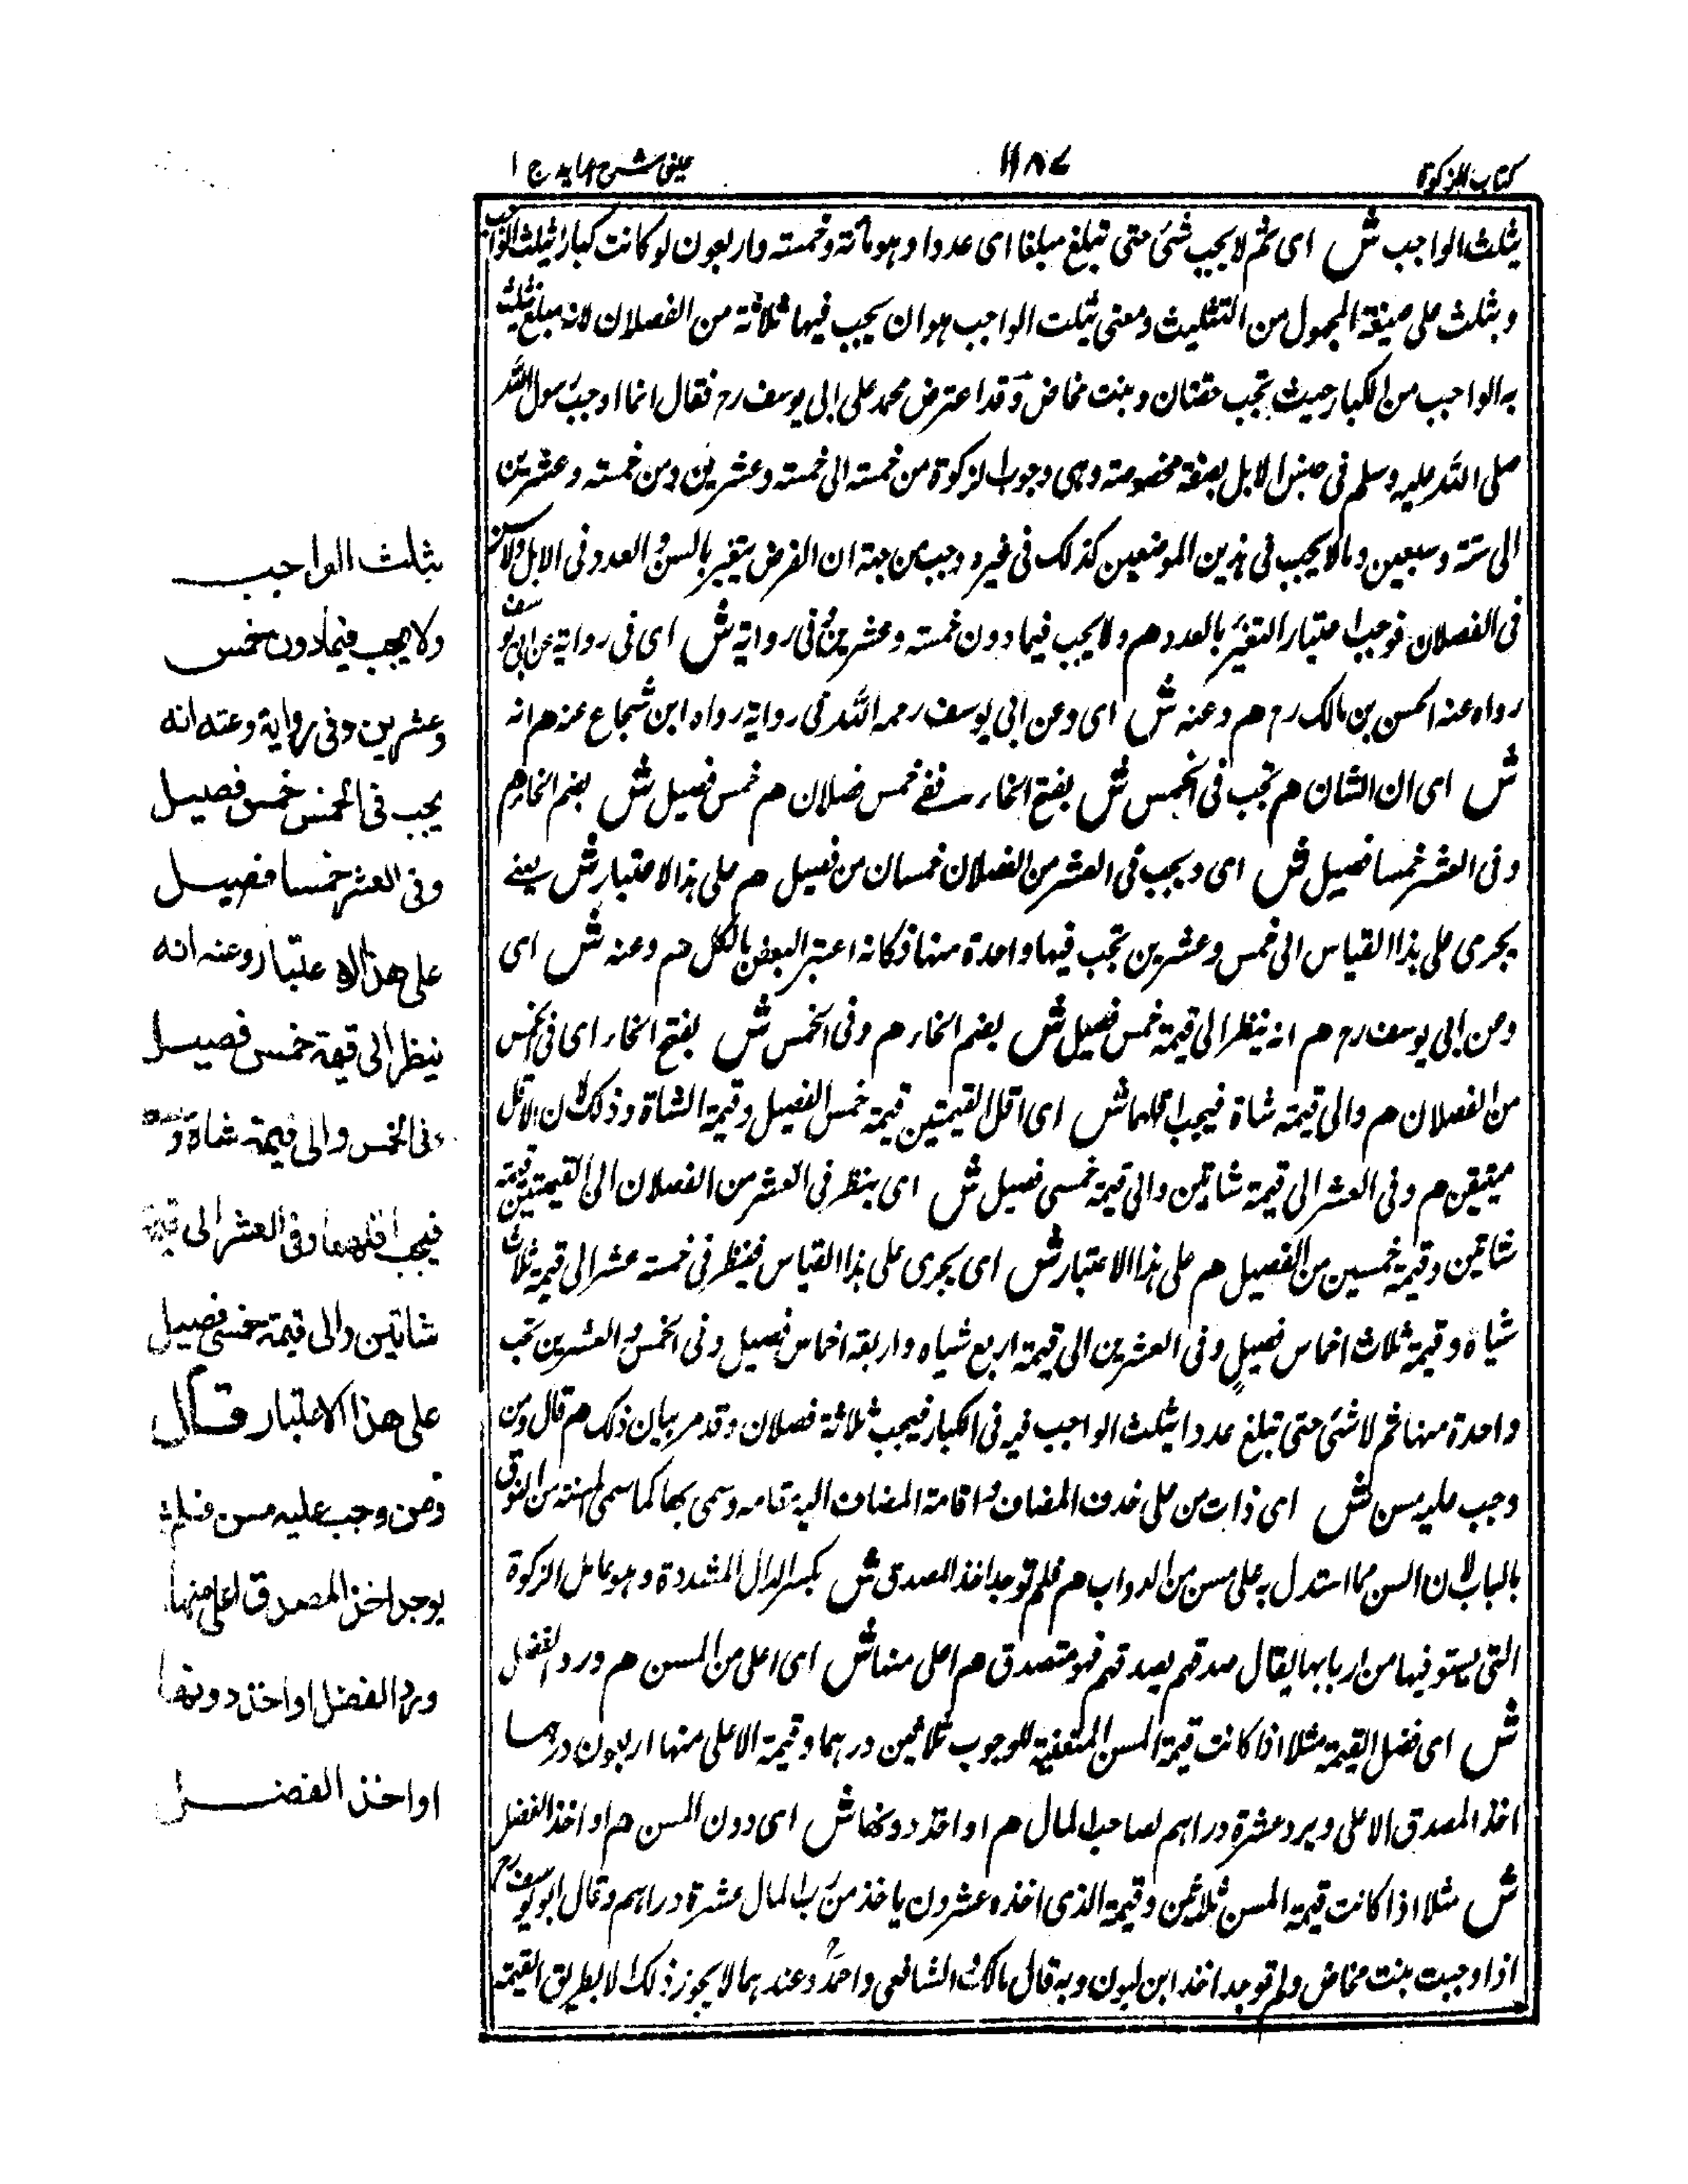 كتاب الزكوة
١١٨٧
عینی شرح هدایه ج ١
يثلث الواجب ش اى ثم لايجب شئ حتى تبلغ مبلغا اى عددا وهو مائة وخمسته واربعون لو كانت كبارا يثلث الواجب
ويثلث على صيغة المجهول من التثليث ومعنى يثلث الواجب هو ان يجب فيها ثلاثة من الفصلان لانه مبلغ يثلث
به الواجب من الكبار حيث تجب حقتان وبنت مخاض وقد اعترض محمد على ابى يوسف رح فقال انما اوجب رسول الله
صلى الله عليه وسلم فى جنس الابل بصفة مخصوصة وهى وجوب الزكوة من خمسته الى خمسته وعشرين ومن خمسته وعشرين
الى ستة وسبعين ومالا يجب فى هذين الموضعين كذلك فى غيره وجب من جهة ان الفرض يتغير بالسن والعدد فى الابل ولاسن
فى الفصلان فوجب اعتبار التغير بالعدد هم ولا يجب فيما دون خمسته وعشرين فى رواية ش اى فى رواية عن ابى يوسف
رواه عنه الحسن بن مالك رح هم وعنه ش اى وعن ابى يوسف رحمه الله فى رواية رواه ابن شجاع عنه هم انه
ش اى ان الشان هم تجب فى الخمس ش بفتح الخاء يعنى خمس فصلان هم خمس فصيل ش بضم الخاء هم
وفى العشر خمسا فصيل ش اى ويجب فى العشر من الفصلان خمسان من فصيل هم على هذا الاعتبار ش يعنى
يجرى على هذا القياس الى خمس وعشرين تجب فيها واحدة منها فكانه اعتبر البعض بالكل هم وعنه ش اى
وعن ابى يوسف رح هم انه ينظر الى قيمة خمس فصيل ش بضم الخاء هم وفى الخمس ش بفتح الخاء اى فى خمس
من الفصلان هم والى قيمة شاة فيجب اقلهما ش اى اقل القيمتين قيمة خمس الفصيل وقيمة الشاة وذلك لان الاقل
متيقن هم وفى العشر الى قيمة شاتين والى قيمة خمسى فصيل ش اى ينظر فى العشر من الفصلان الى القيمتين قيمة
شاتين وقيمة خمسين من الفصيل هم على هذا الاعتبار ش اى يجرى على هذا القياس فينظر فى خمسة عشر الى قيمة ثلاث
شياه وقيمة ثلاث اخماس فصيل وفى العشرين الى قيمة اربع شياه واربعة اخماس فصيل وفى الخمس والعشرين تجب
واحدة منها ثم لاشئ حتى تبلغ عددا يثلث الواجب فيه فى الكبار فيجب ثلاثة فصلان وقد مر بيان ذلك هم قال ومن
وجب عليه مسن ش اى ذات سن على حذف المضاف واقامة المضاف اليه مقامه وسمى بها كما سمى المسنة من النوق
بالناب لان السن مما استدل به على مسن من الدواب هم فلم توجد اخذ المصدق ش بكسر الدال المشددة وهو عامل الزكوة
التى يستوفيها من اربابها يقال صدقهم يصدقهم فهو متصدق هم اعلى منها ش اى اعلى من المسن هم ورد الفضل
ش اى فضل القيمة مثلا اذا كانت قيمة المسن المتعينة للوجوب ثلاثين درهما وقيمة الاعلى منها اربعون درهما
اخذ المصدق الاعلى ويرد عشرة دراهم لصاحب المال هم او اخذ دونها ش اى دون المسن هم او اخذ الفضل
ش مثلا اذا كانت قيمة المسن ثلاثين وقيمة الذى اخذه عشرون ياخذ من رب المال عشرة دراهم وقال ابو يوسف رح
اذا وجبت بنت مخاض ولم توجد اخذ ابن لبون وبه قال مالك والشافعى واحمد وعندهما لا يجوز ذلك الا بطريق القيمة
يثلث الواجب
ولا يجب فيما دون خمس
وعشرين وفى رواية وعنه انه
يجب فى الخمس خمس فصيل
وفى العشر خمسا فصيل
على هذا الاعتبار وعنه انه
ينظر الى قيمة خمس فصيل
فى الخمس والى قيمة شاة و
فيجب اقلهما وفى العشر الى قيمة
شاتين والى قيمة خمسى فصيل
على هذا الاعتبار قال
ومن وجب عليه مسن فلم
يوجد اخذ المصدق اعلى منها
ورد الفضل او اخذ دونها
او اخذ الفضل